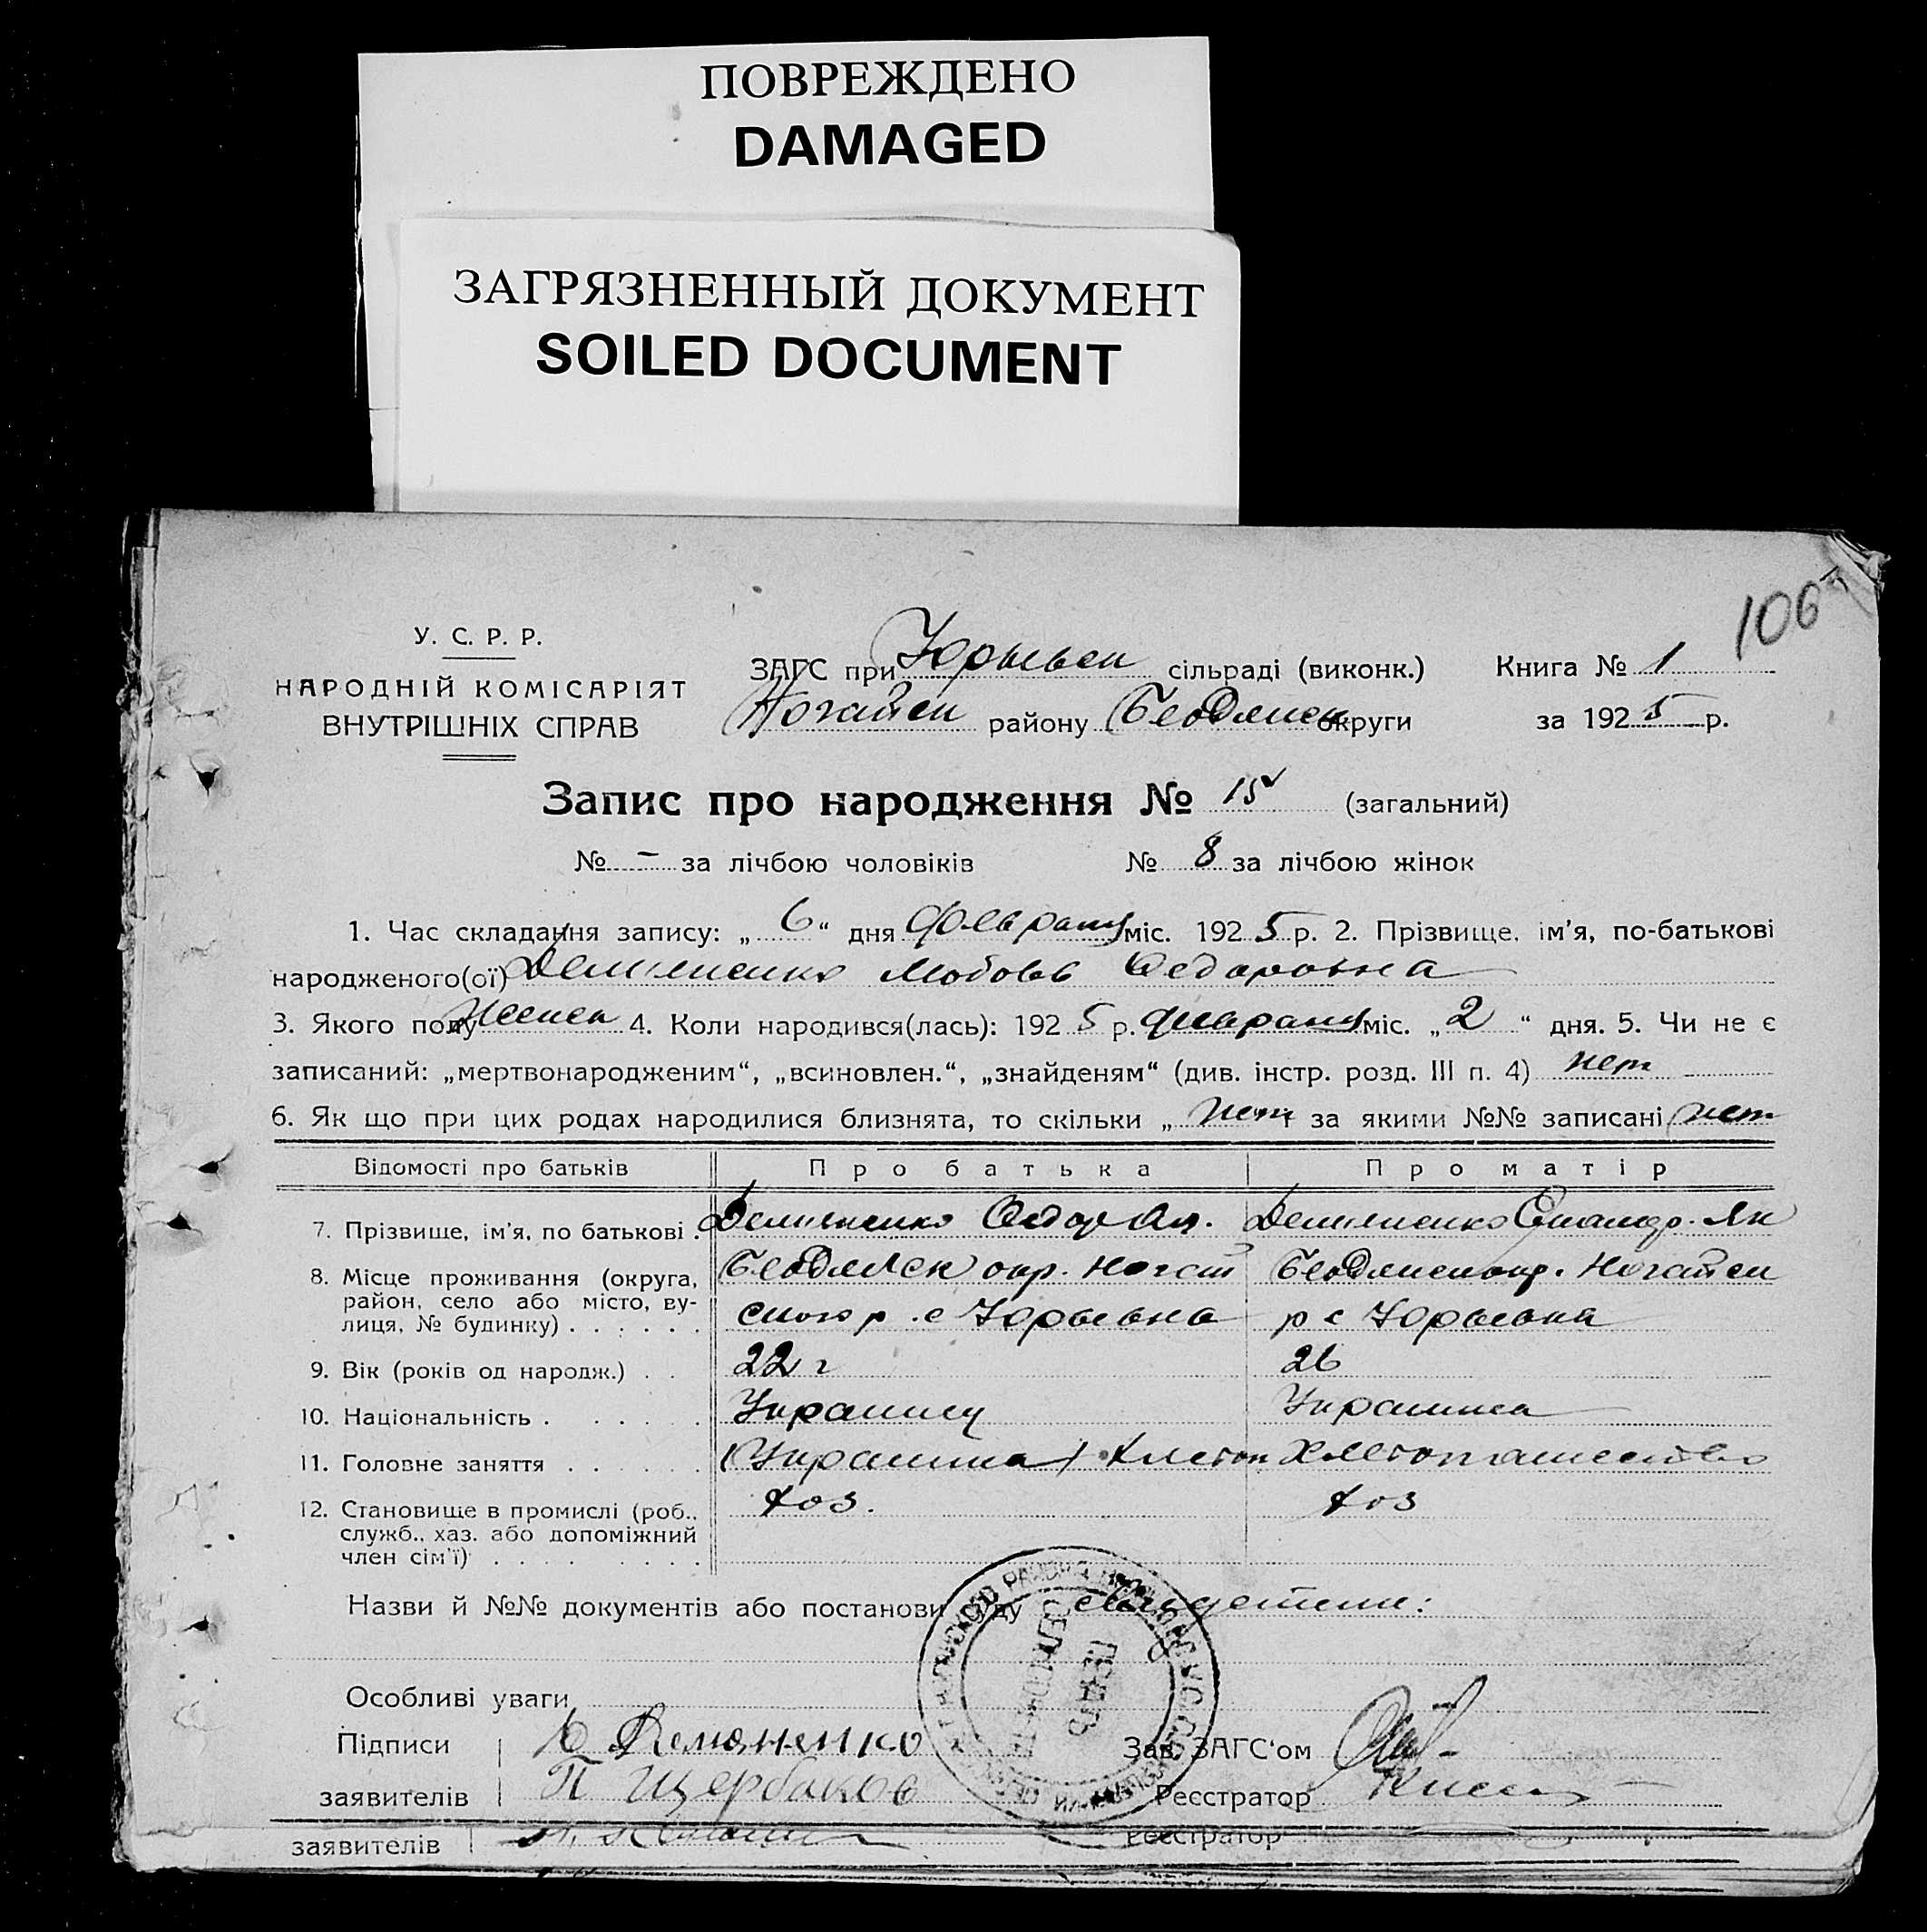 ПОВРЕЖДЕНО
DAMAGED
ЗАГРЯЗНЕННЫЙ ДОКУМЕНТ
SOILED DOCUMENT
106
У. С. Р. Р.
НАРОДНІЙ КОМІСАРІЯТ
ВНУТРІШНІХ СПРАВ
ЗАГС при Юрьевск сільраді (виконк.) Книга № 1
Ногайск району Бердянск округи за 1925 р.
Запис про народження № 15 (загальний)
№ - за лічбою чоловіків № 8 за лічбою жінок
1. Час складання запису: „ 6 “ дня февраля міс. 1925 р. 2. Прізвище, ім'я, по-батькові
народженого(ої) Демяненко Любовь Федоровна
3. Якого полу женск 4. Коли народився(лась): 1925 р. февраля міс. „ 2 “ дня. 5. Чи не є
записаний: „мертвонародженим“, „всиновлен.“, „знайденям“ (див. інстр. розд. III п. 4) нет
6. Як що при цих родах народилися близнята, то скільки „ нет за якими №№ записані нет
Відомості про батьків Про батька Про матір
7. Прізвище, ім'я, по батькові . Демяненко Федор Демяненко
8. Місце проживання (округа, район, село або місто, вулиця, № будинку) . . . . . . Бердянск окр. Ногай
ского р. с Юрьевка Бердянск окр. Ногайск
р с Юрьевка
9. Вік (років од народж.) . . 22 г 26
10. Національність . . . . . Украинец Украинка
11. Головне заняття . . . . . . (Украинка) Хлебоп Хлебопашество
12. Становище в промислі (роб., служб., хаз. або допоміжний член сім'ї) . . . . . . . . . хоз. хоз
Назви й №№ документів або постанови суду
Особливі уваги
Підписи Демяненко Зав. ЗАГС'ом
заявителів П Щербаков Реєстратор
заявителів Реєстратор